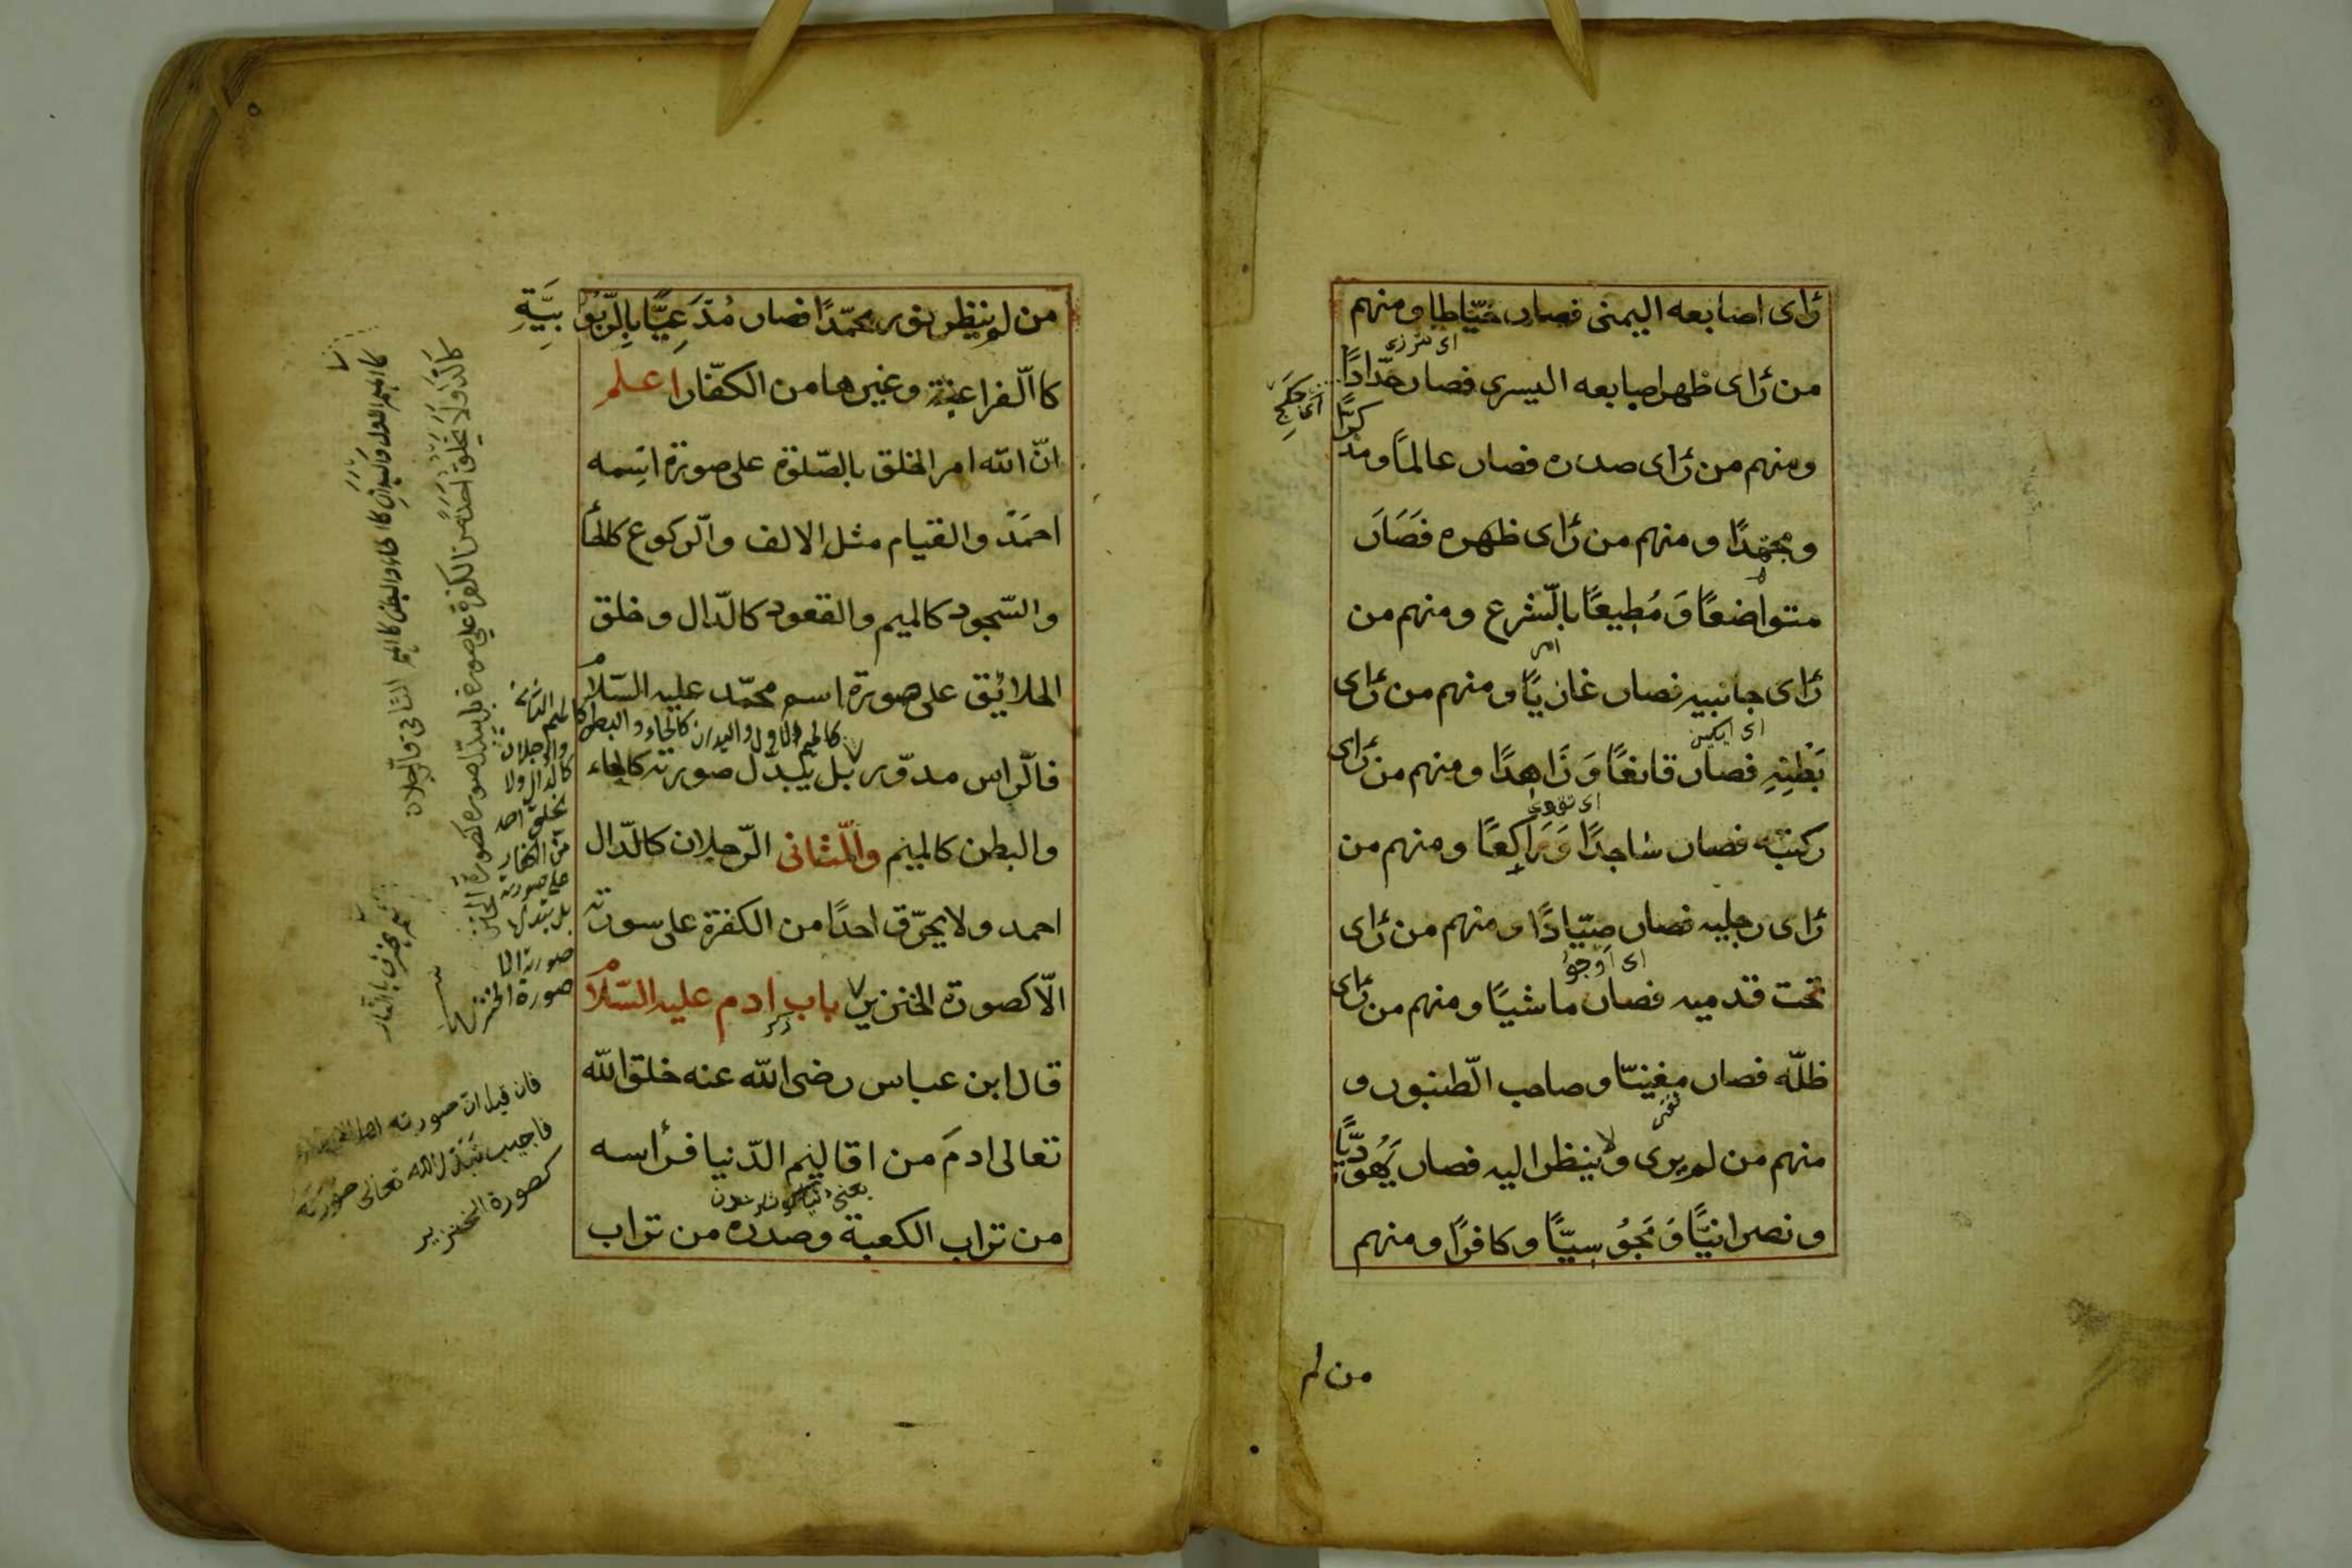 رَاى اصابعه اليمنى فصار خيّاطا ومنهم
من رَاى ظهر اصابعه اليسرى فصار حدّادًا
ومنهم من رَاى صدره فصار عالمًا ومذ
كرًا
ومجتهدًا ومنهم من رَاى ظهره فَصَارَ
متواضعًا وَمُطِيعًا بالّشرع ومنهم من
امر
رَاى جانبيه فصار غازيًا ومنهم من رَاى
بَطْنِهِ فصار قانعًا وَزَاهِدًا ومنهم من رَاى
ركبته فصار ساجدًا وَرَاكِعًا ومنهم من
رَاى رجليه فصار صِيّادًا ومنهم من رَاى
تحت قدميه فصار ماشيًا ومنهم من رَاى
ظلّه فصار مغنيّا وصاحب الّطنبور و
منهم من لم يرى ولا ينظر اليه فصار يَهُودِيًّا
ونصرانيًّا وَمَجُوسِيًّا وكافرًا ومنهم
من لم
من لم ينظر بنور محمّدًا فصار مُدَّعِيًّا بِالّرّبُوبِيَّةِ
كاالّفراعنة وغيرها من الكفّار اعلم
انّ الله امر الخلق بالصّلوة على صورة اسِمه
احمَدْ والقيام مثل الالف والّركوع كالحأ
والسّجود كالميم والقعود كالدّال وخلق
الخلائق على صورة اسم محمّد عليه السّلام
كالميم الاول واليدان كالحاء والبطن كالميم الثانى
والرجلان
كالدال ولا
يخلق احد
من الكفار
على صورته
بل يتبدل
صورة الخنزير
فالّراس مدوّر بل يبدّل صورته كالحاء
والبطن كالميم والّثانى الّرجلان كالدّال
احمد ولا يحرّق احدًا من الكفرة على سورته
الّا كصورة الخنزير باب ادم عليه السّلام
قال ابن عباس رضى الله عنه خلق الله
تعالى ادمَ من اقاليم الدّنيا فرأسه
من تراب الكعبة وصدره من تراب
فان قيل ان صورته
فاجيب تبدل الله تعالى صورته
كصورة الخنزير